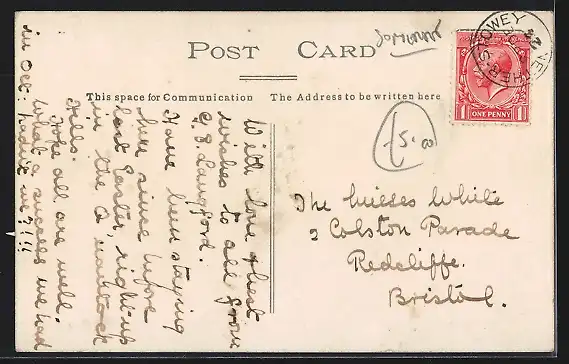 POST CARD
Somerset
This space for Communication
The Address to be written here
NETHER STOWEY
ONE PENNY
1 1
£5.00
The Misses White
3 Colston Parade
Redcliffe.
Bristol.
With love & best
wishes to all from
C. B. Langford.
Have been staying
here since before
last Easter, right up
in the Quantock
Hills.
Hope all are well.
What a success we had
in Oct: hadn't we?!!!